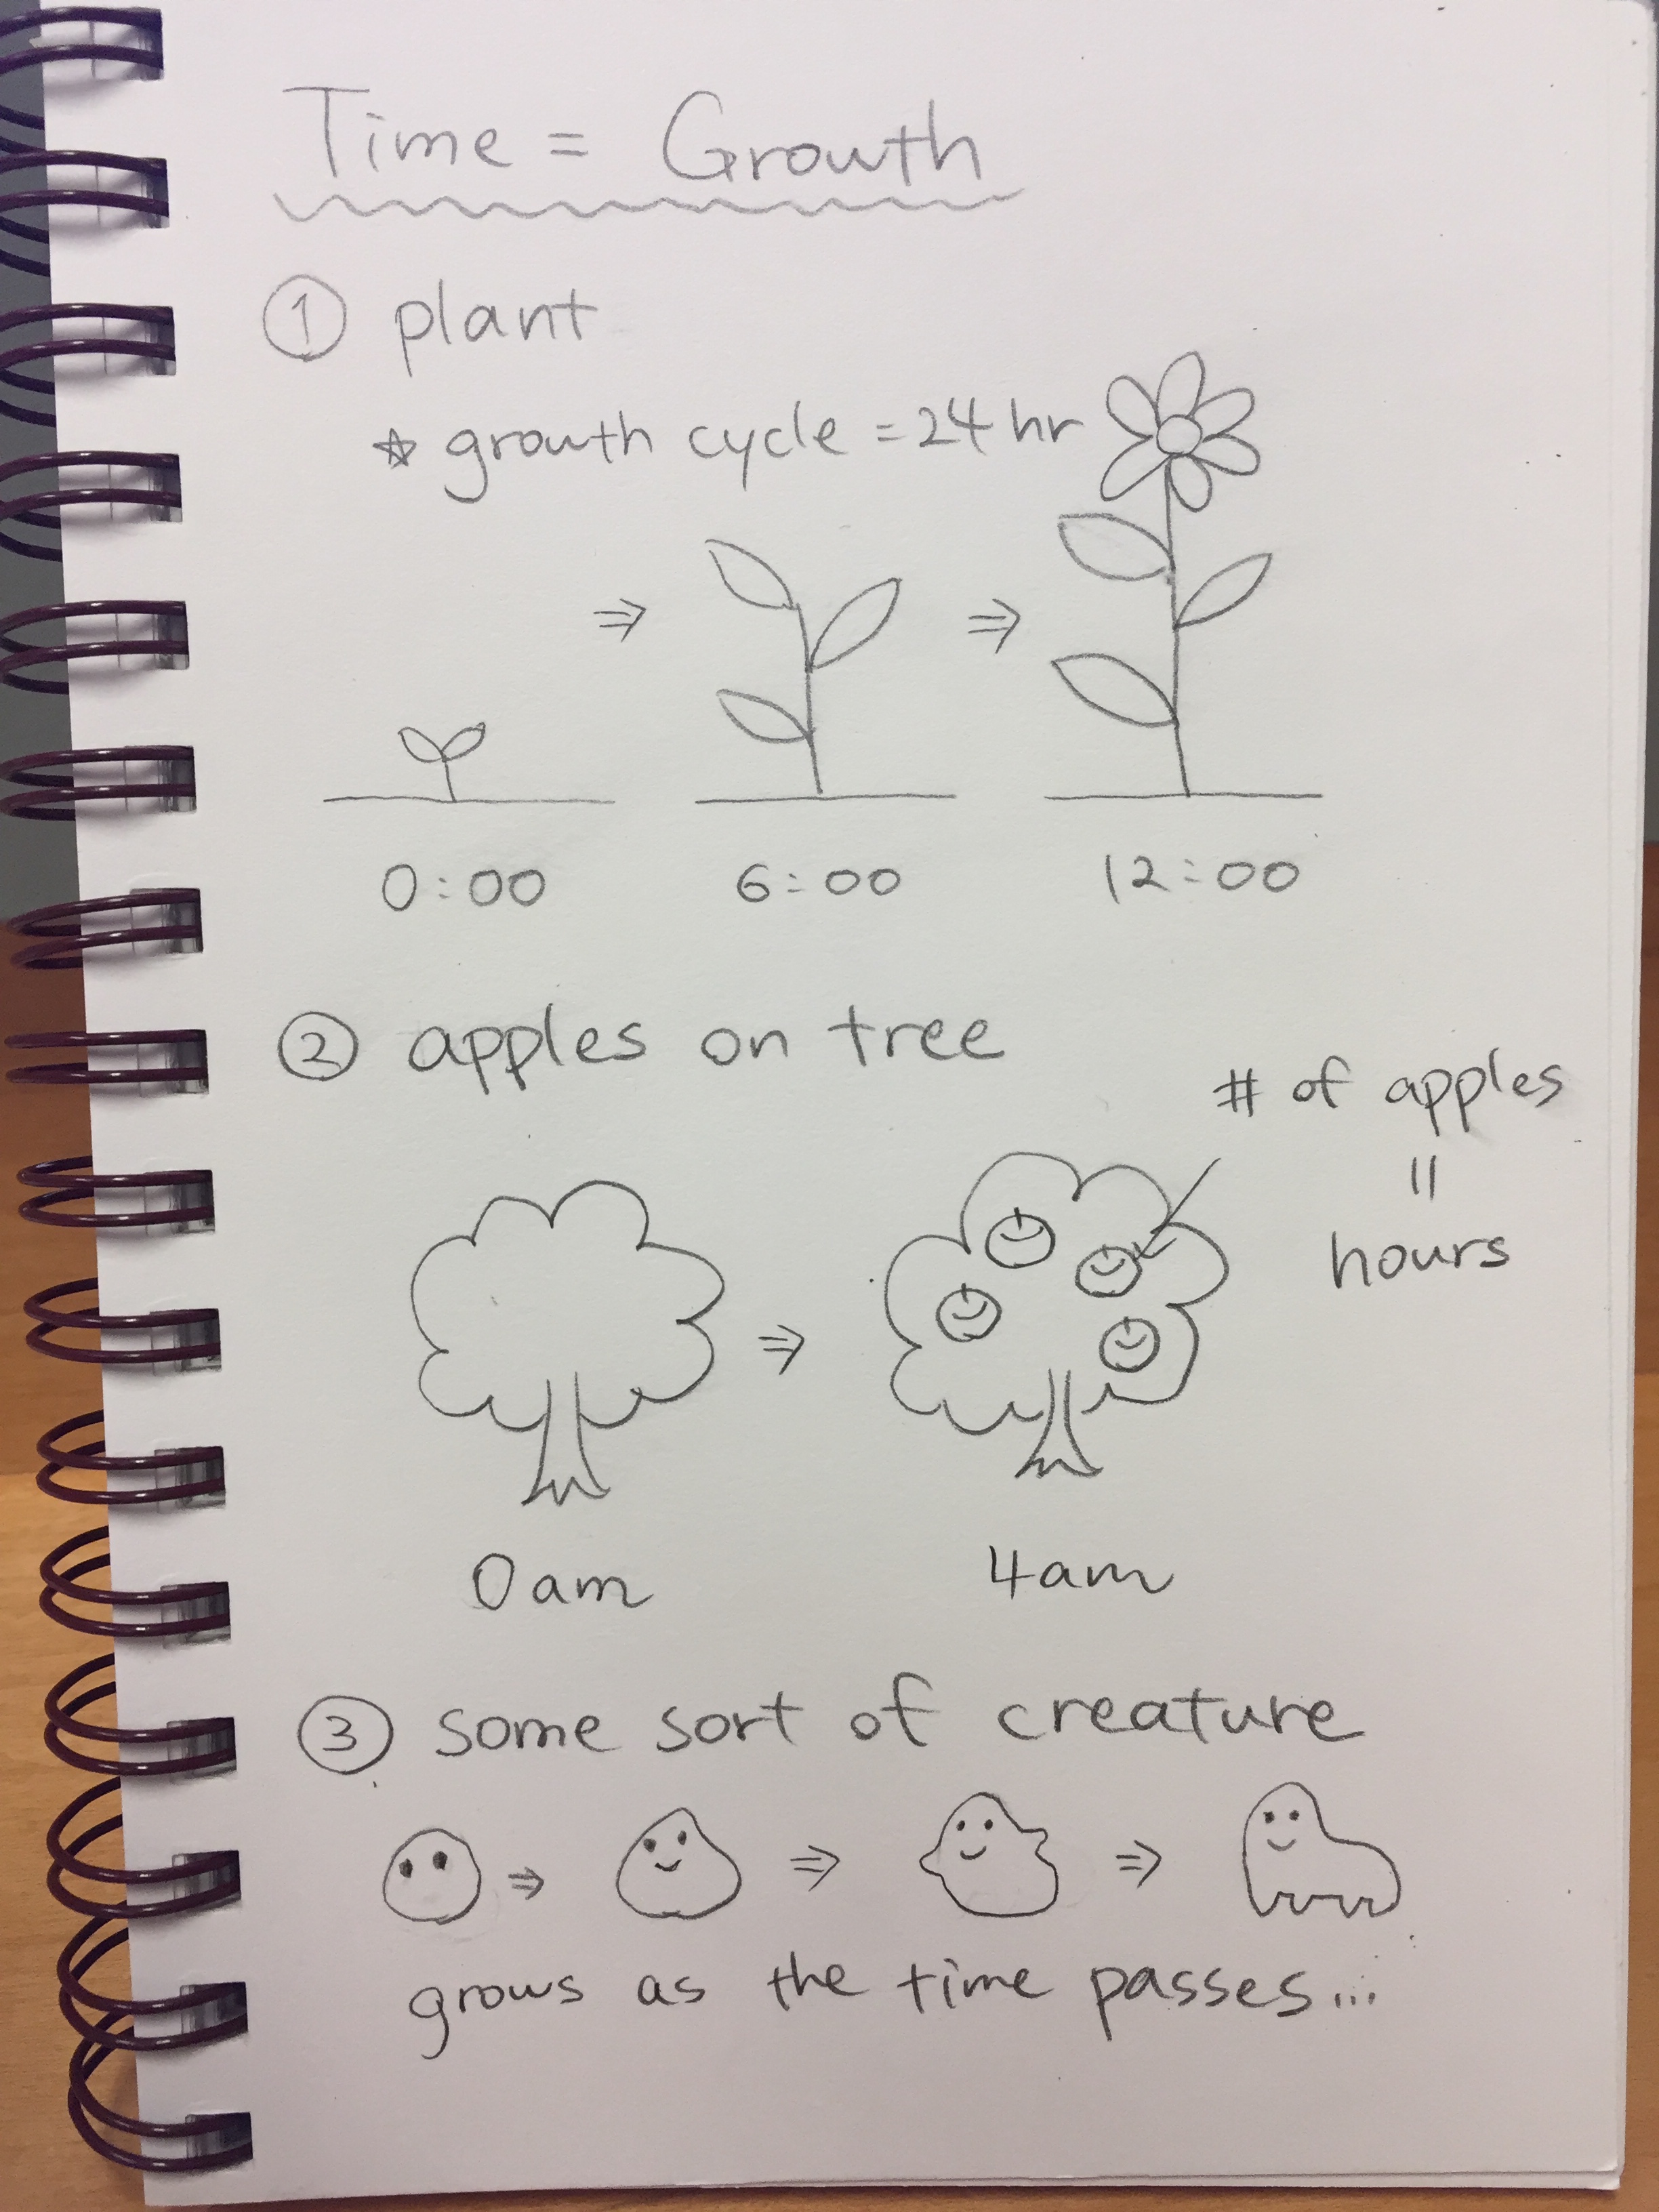 Time = Growth
① plant
☆ growth cycle = 24 hr
⇒ ⇒
0:00 6:00 12:00
② apples on tree
# of apples
||
hours
⇒
0am 4am
③ some sort of creature
⇒ ⇒ ⇒
grows as the time passes...